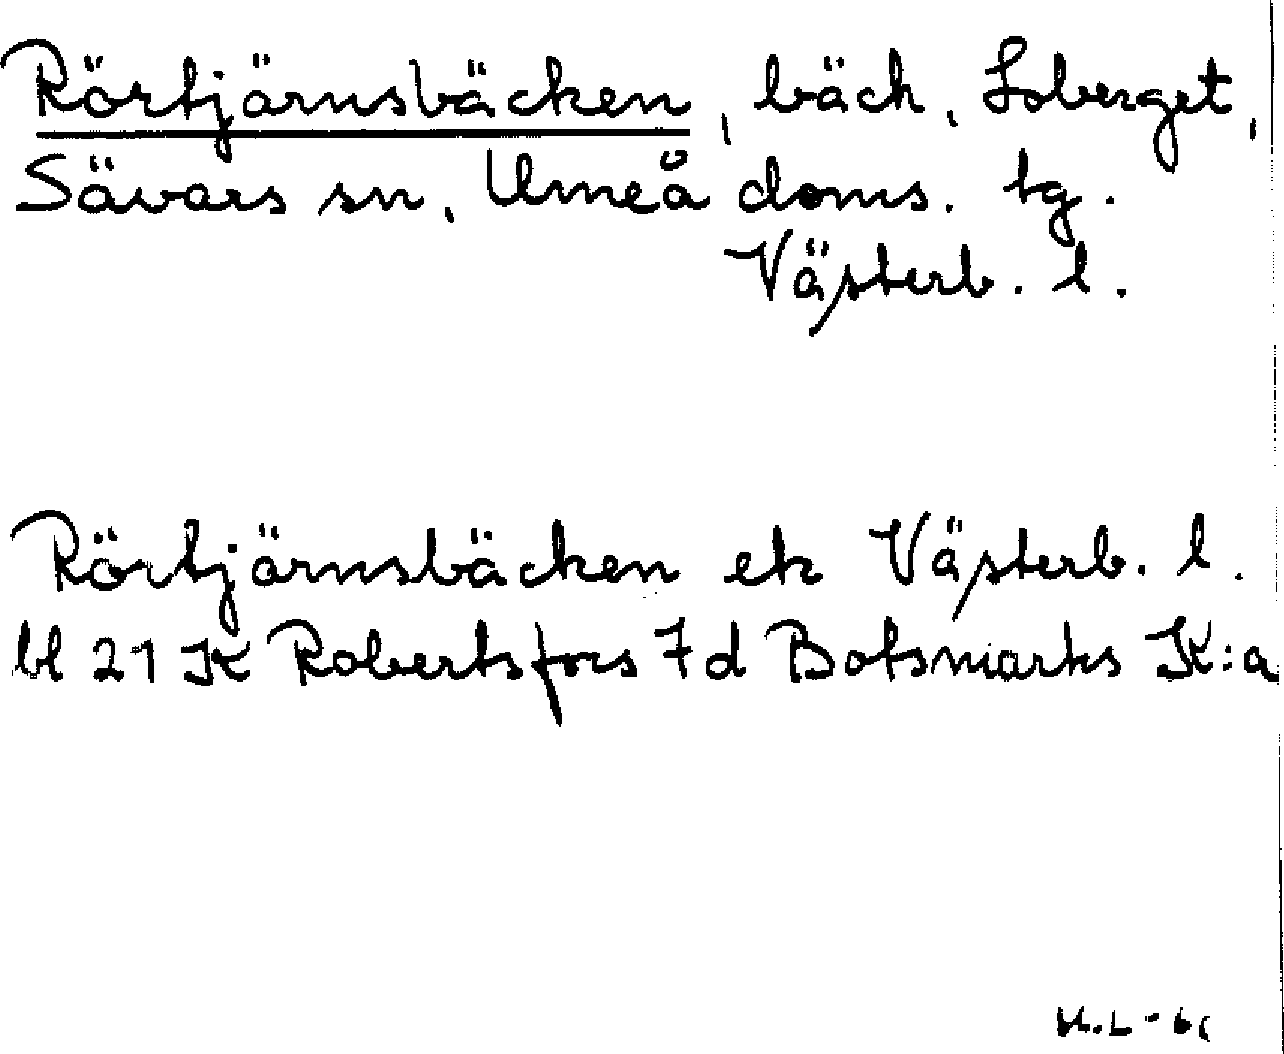 Rörtjärnsbäcken, bäck, Loberget,
Sävars sn, Umeå doms. tg.
Västerb. l.
Rörtjärnsbäcken ek Västerb. l.
bl 21 K Robertsfors 7d Botsmarks K:a